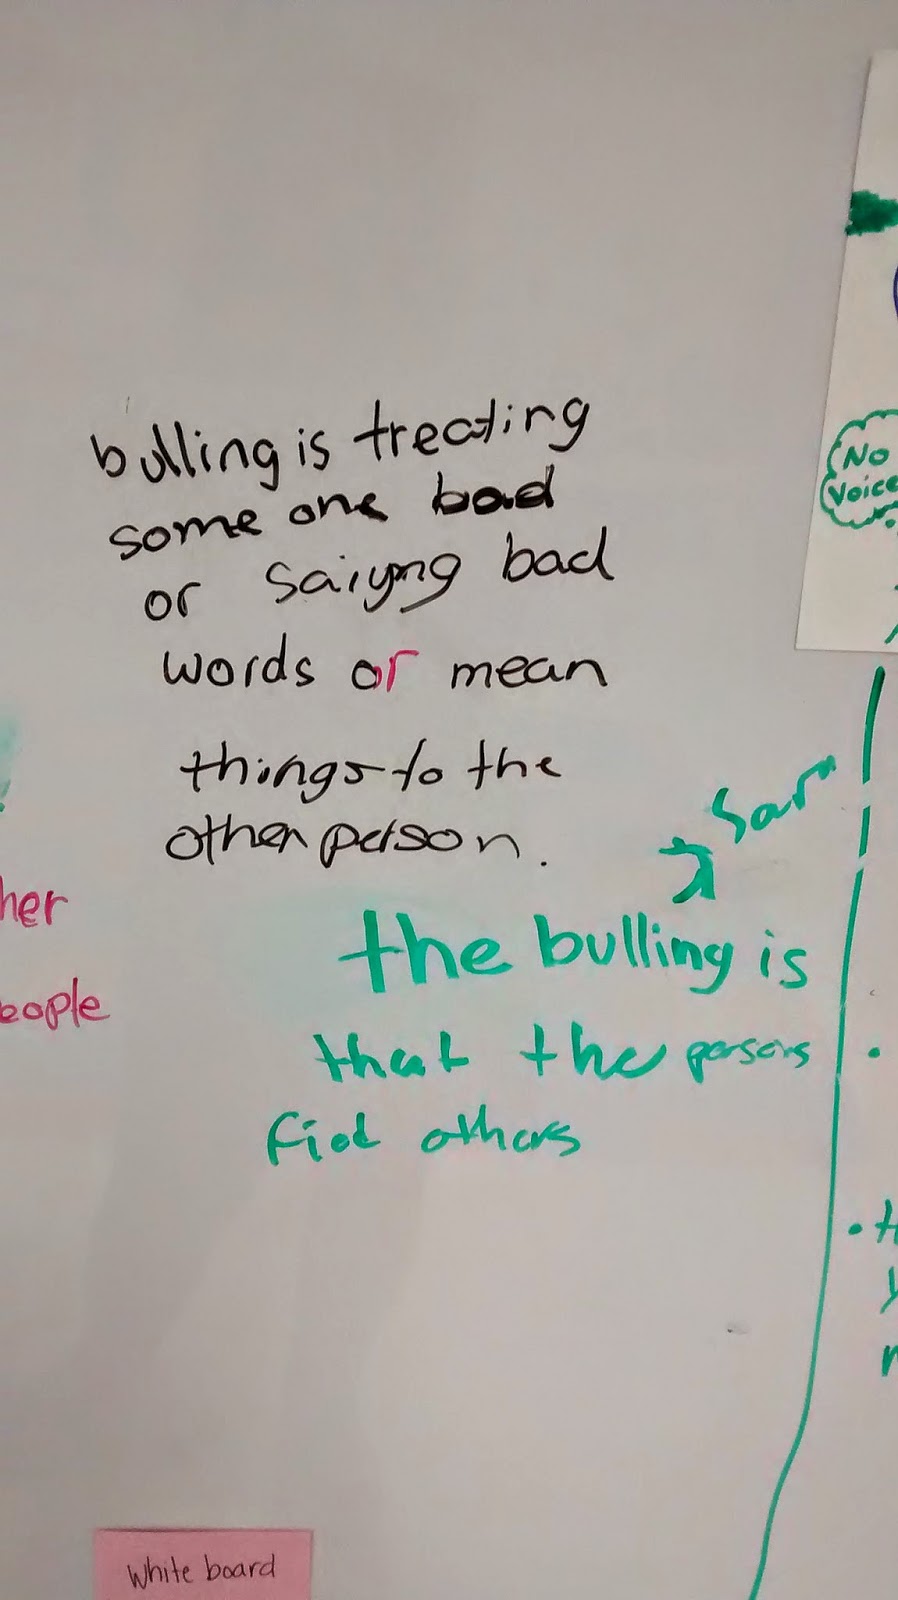 bulling is treating
some one bad
or saiyng bad
words or mean
things to the
other person.
Sara
the bulling is
that the persons
others
No
Voice
her
eople
White board